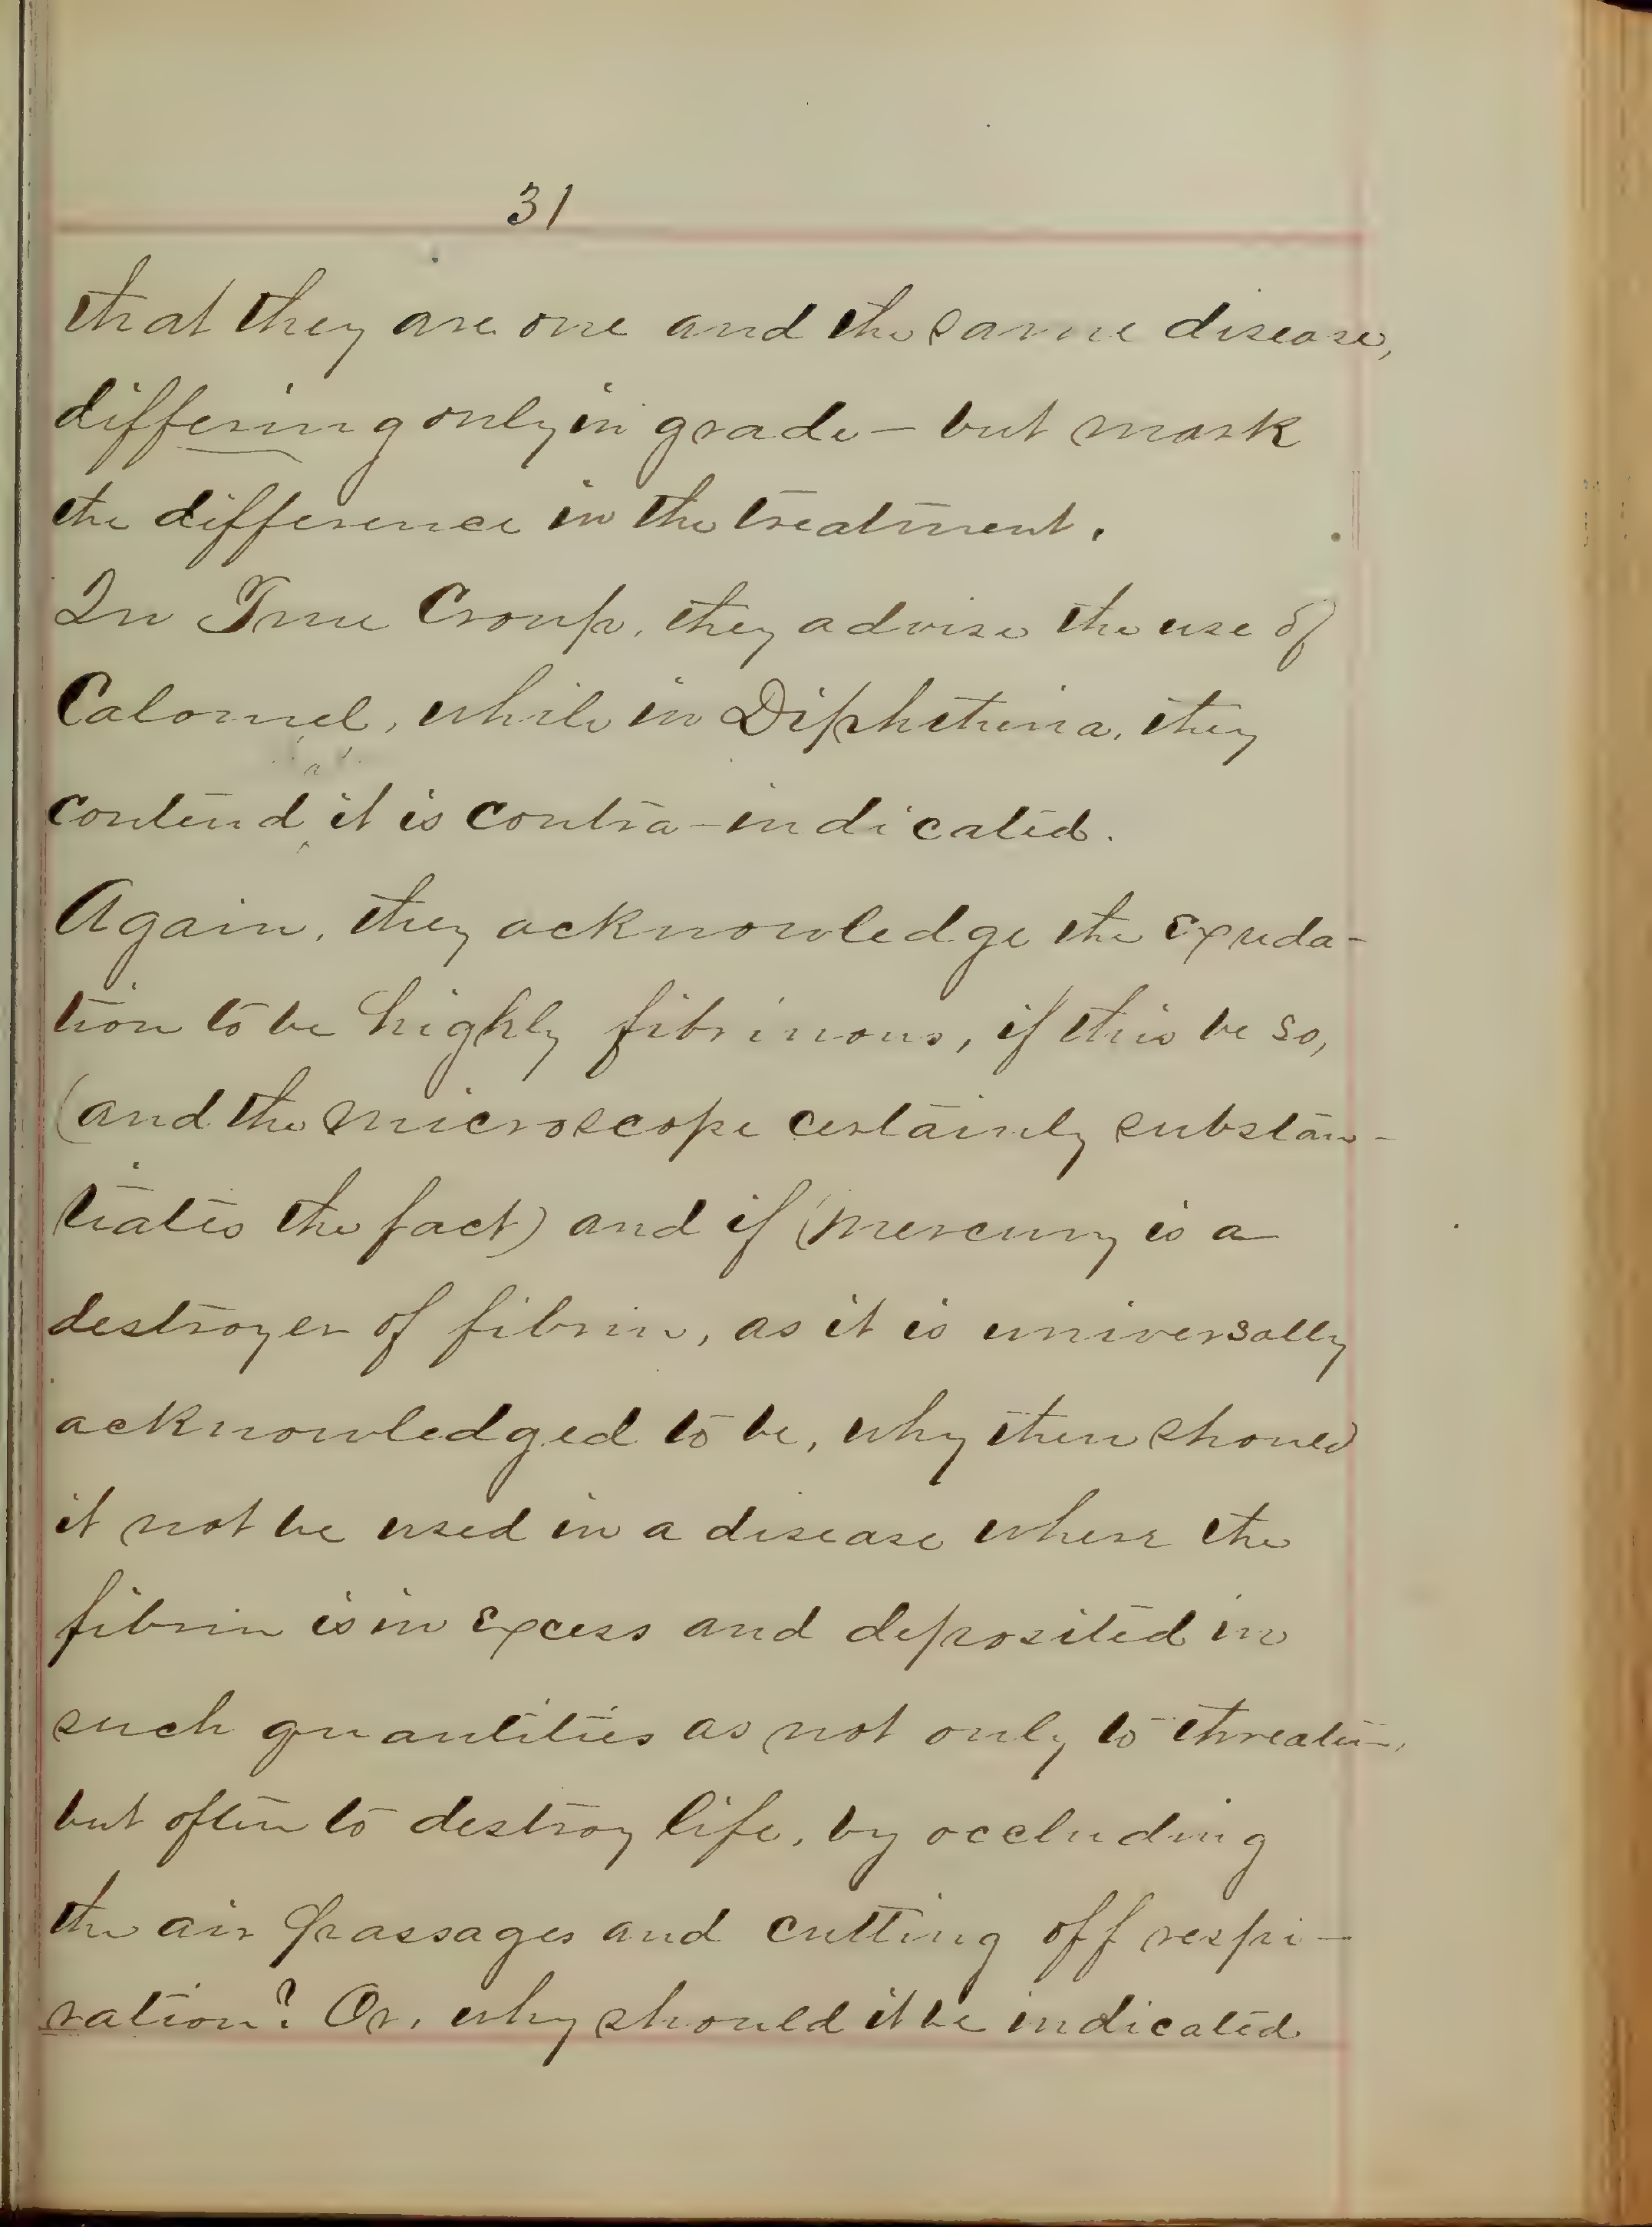 31
that they are one and the same disease,
differing only in grade — but mark
the difference in the treatment.
In True Croup, they advise the use of
Calomel, while in Diphtheria, they
contend it is contra-indicated.
Again, they acknowledge the exuda-
tion to be highly fibrinous, if this be so,
(and the microscope certainly substan-
tiates the fact) and if mercury is a
destroyer of fibrin, as it is universally
acknowledged to be, why then should
it not be used in a disease where the
fibrin is in excess and deposited in
such quantities as not only to threaten,
but often to destroy life, by occluding
the air passages and cutting off respi-
ration? Or, why should it be indicated